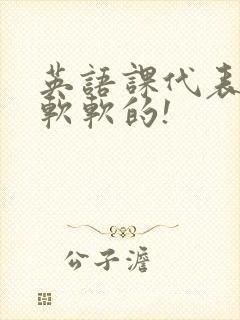 英語課代表
軟軟的!
公子澹